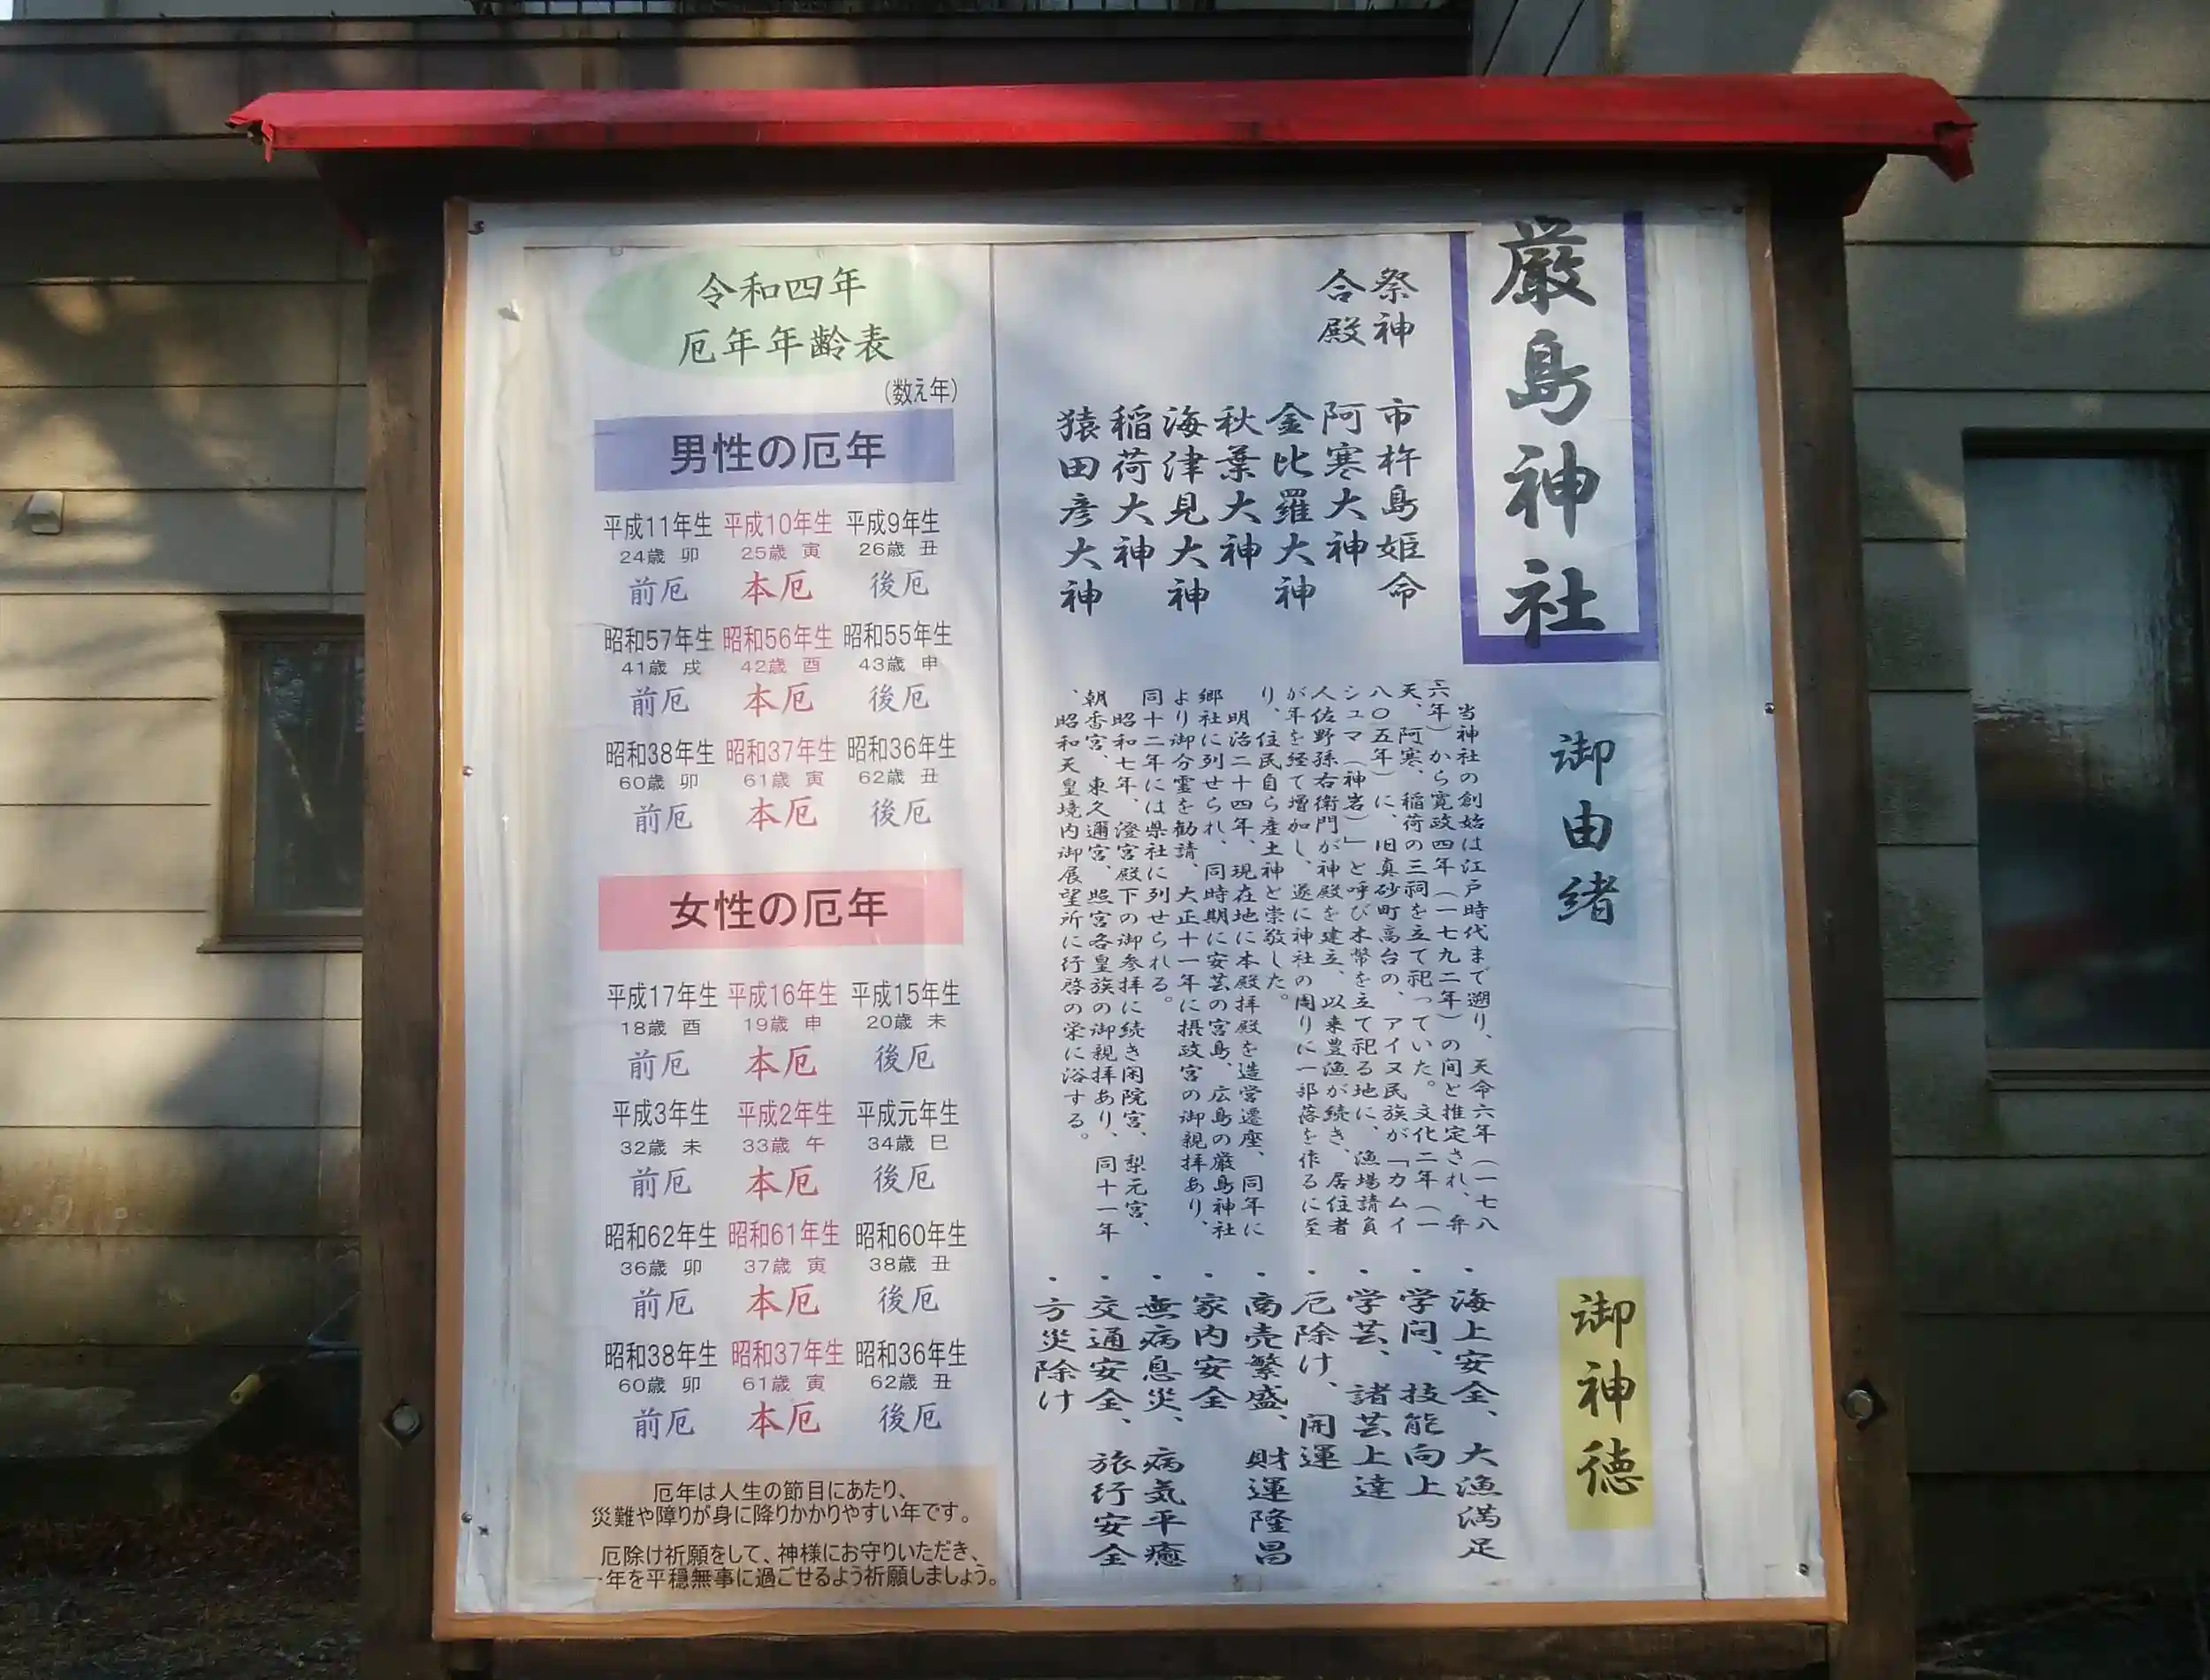 厳島神社
祭神　市杵島姫命
合殿　阿寒大神
金比羅大神
秋葉大神
海津見大神
稲荷大神
猿田彦大神
御由緒
当神社の創始は江戸時代まで遡り、天命六年（一七八
六年）から寛政四年（一七九二年）の間と推定され、弁
天、阿寒、稲荷の三祠を立て祀っていた。文化二年（一
八〇五年）に、旧真砂町高台の、アイヌ民族が「カムイ
シュマ（神岩）」と呼び木幣を立て祀る地に、漁場請負
人佐野孫右衛門が神殿を建立、以来豊漁が続き、居住者
が年を経て増加し、遂に神社の周りに一部落を作るに至
り、住民自ら産土神と崇敬した。
明治二十四年、現在地に本殿拝殿を造営遷座、同年に
郷社に列せられ、同時期に安芸の宮島、広島の厳島神社
より御分霊を勧請、大正十一年に摂政宮の御親拝あり、
同十二年には県社に列せられる。
昭和七年、澄宮殿下の御参拝に続き閑院宮、梨元宮、
朝香宮、東久邇宮、照宮各皇族の御親拝あり、同十一年
、昭和天皇境内御展望所に行啓の栄に浴する。
御神徳
・海上安全、大漁満足
・学問、技能向上
・学芸、諸芸上達
・厄除け、開運
・商売繁盛、財運隆昌
・家内安全
・無病息災、病気平癒
・交通安全、旅行安全
・方災除け
令和四年
厄年年齢表
(数え年)
男性の厄年
平成11年生 平成10年生 平成9年生
24歳 卯 25歳 寅 26歳 丑
前厄 本厄 後厄
昭和57年生 昭和56年生 昭和55年生
41歳 戌 42歳 酉 43歳 申
前厄 本厄 後厄
昭和38年生 昭和37年生 昭和36年生
60歳 卯 61歳 寅 62歳 丑
前厄 本厄 後厄
女性の厄年
平成17年生 平成16年生 平成15年生
18歳 酉 19歳 申 20歳 未
前厄 本厄 後厄
平成3年生 平成2年生 平成元年生
32歳 未 33歳 午 34歳 巳
前厄 本厄 後厄
昭和62年生 昭和61年生 昭和60年生
36歳 卯 37歳 寅 38歳 丑
前厄 本厄 後厄
昭和38年生 昭和37年生 昭和36年生
60歳 卯 61歳 寅 62歳 丑
前厄 本厄 後厄
厄年は人生の節目にあたり、
災難や障りが身に降りかかりやすい年です。
厄除け祈願をして、神様にお守りいただき、
一年を平穏無事に過ごせるよう祈願しましょう。